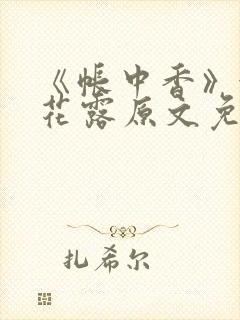 《帐中香》
花露原文免
扎希尔